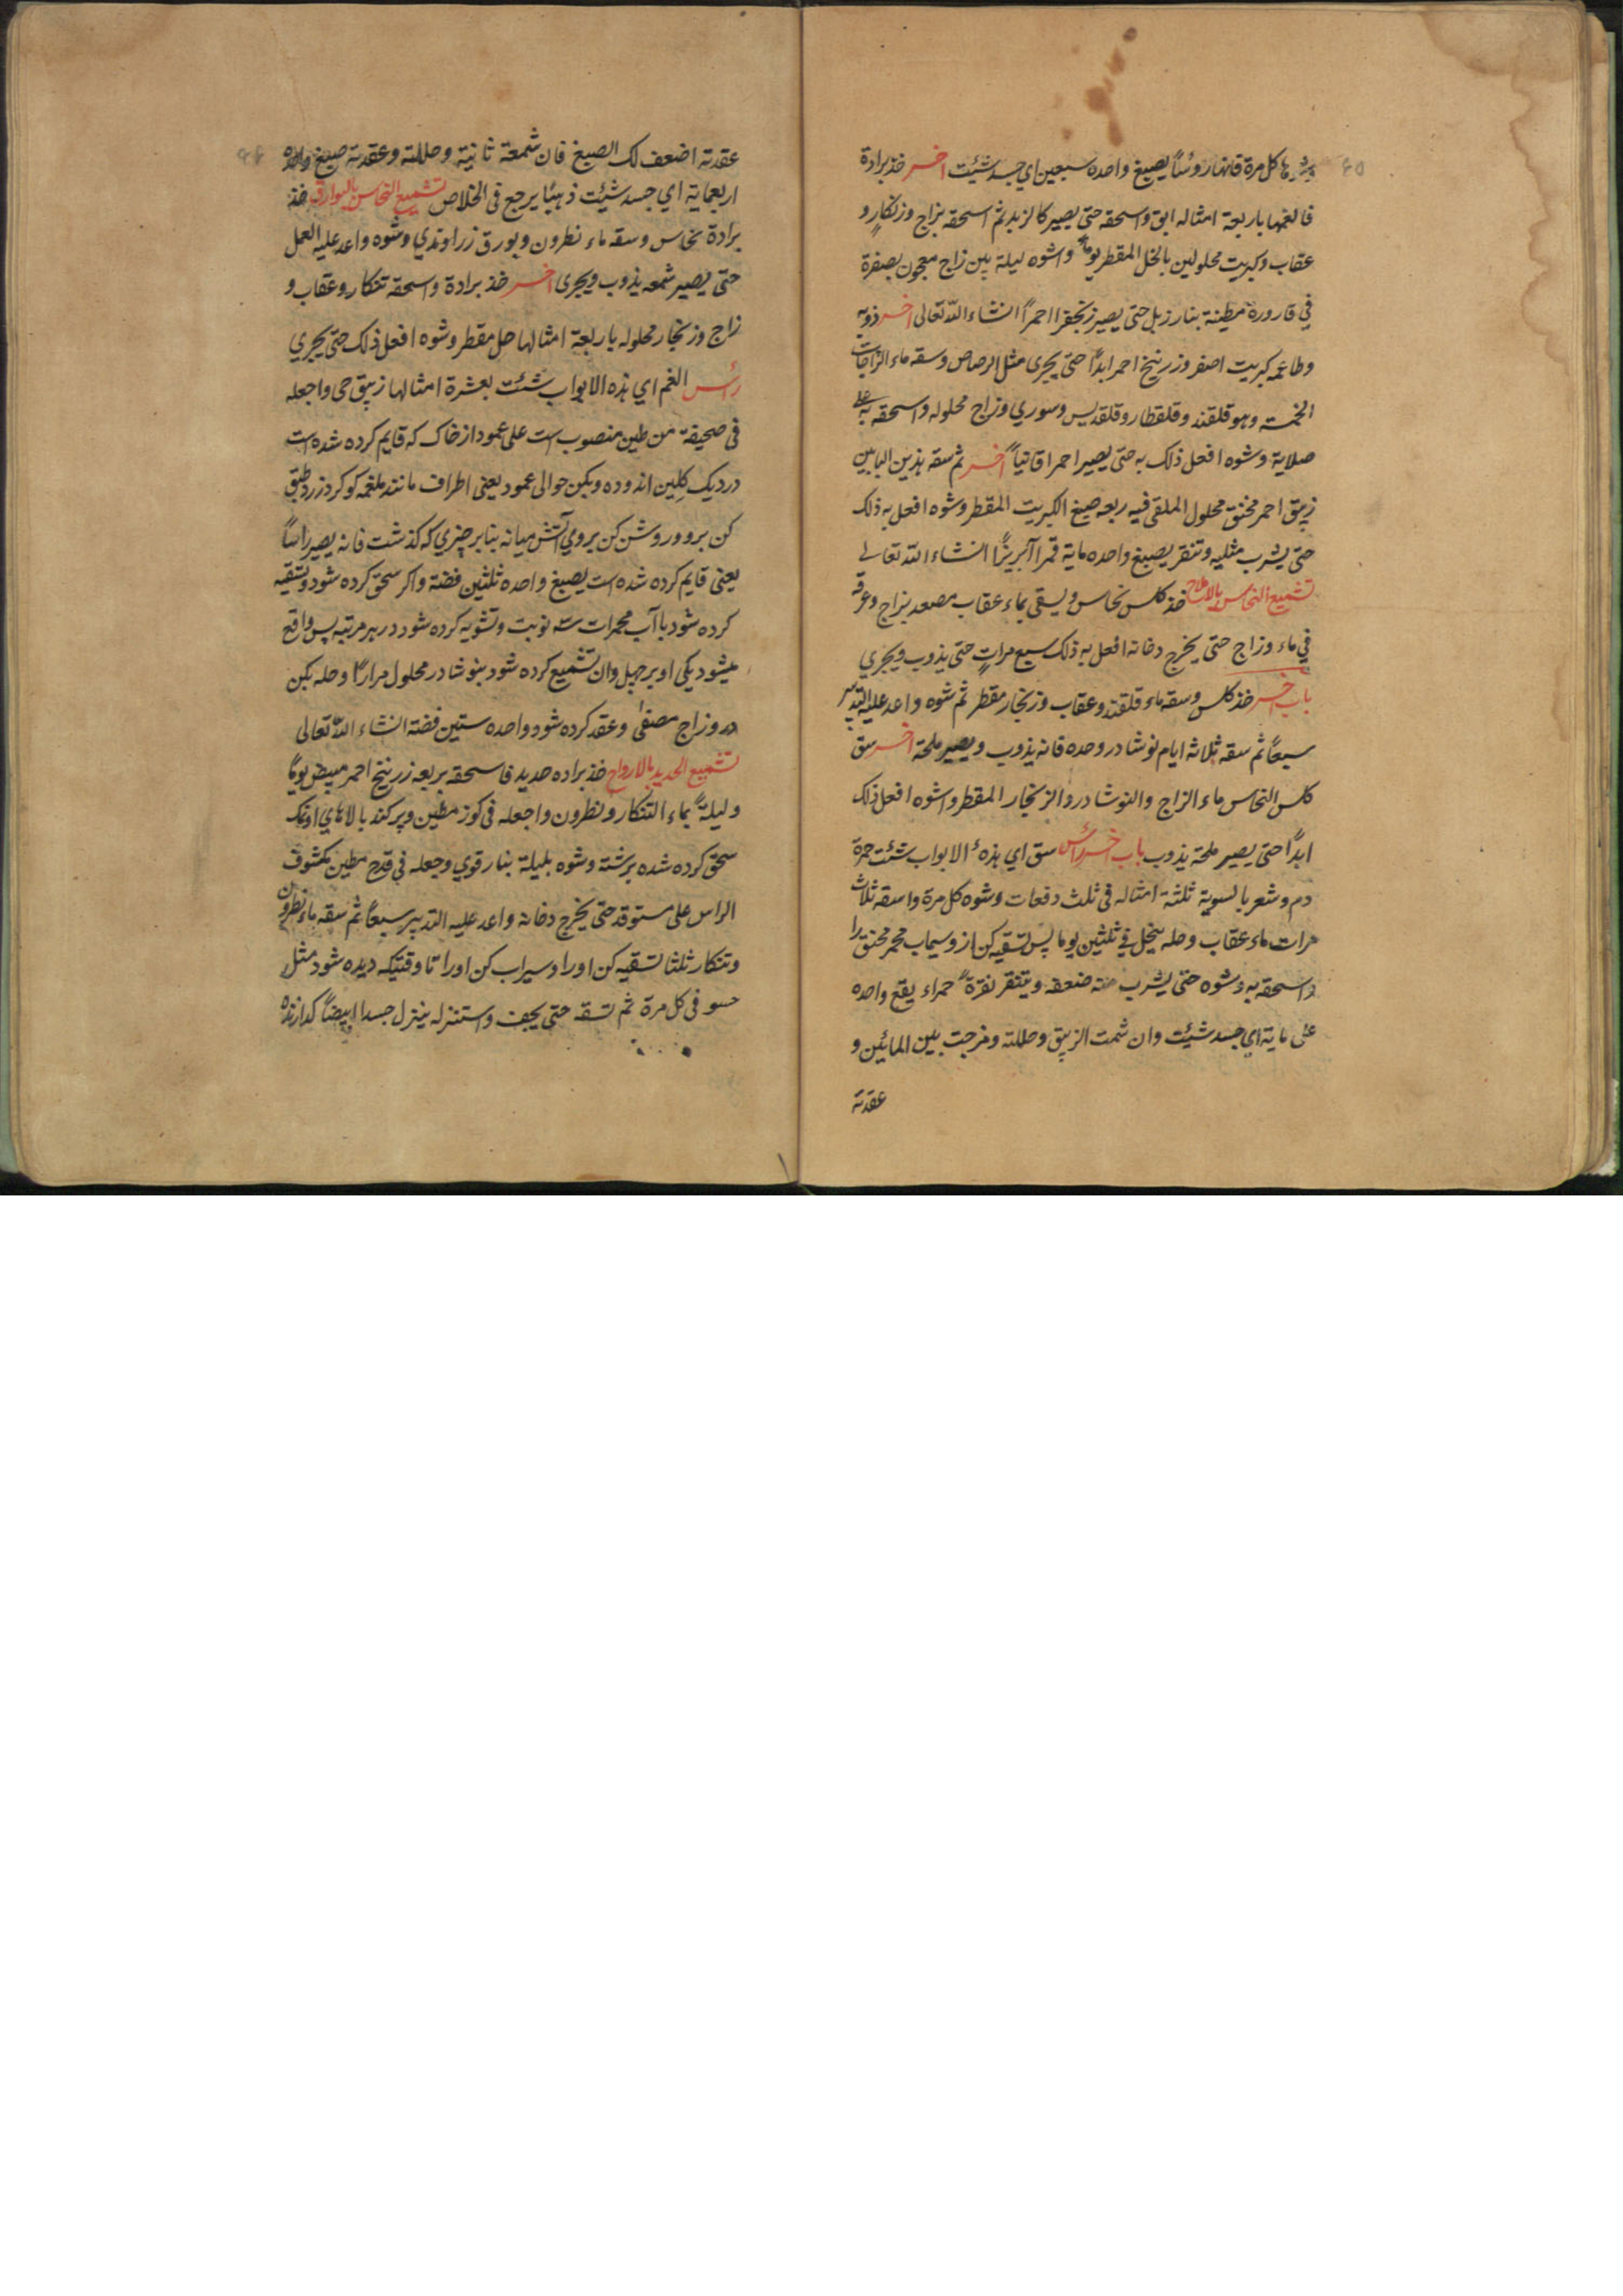 كل مرة فانها روسًا يصبغ واحده سبعين اي جسد شئت اخر خذ برادة
فالغمها باربعة امثاله ابق واسحقه حتى يصير كالزبد ثم اسحقه بزاج وزنكار و
عقاب وكبريت محلولين بالخل المقطر يوما واشوه ليلة بين زاج معجون بصفرة
في قارورة مطينة بنار زبل حتى يصير زنجفرا احمرًا انشاء الله تعالى اخر ذوبه
وطاعمه كبريت اصفر وزرنيخ احمر ابدًا حتى يجرى مثل الرصاص وسقه ماء الزاجات
الخمسة وهو قلقند وقلقطار وقلقديس وسوري وزاج محلوله واسحقه به على
صلاية وشوه افعل ذلك به حتى يصير احمرا قانيًا اخر ثم سقه بذين البابين
زيبق احمر مخنق محلول الملقى فيه ربعه صبغ الكبريت المقطر وشوه افعل به ذلك
حتى يشرب مثليه وتنقر يصبغ واحده ماية قمرا آبريزًا انشاء الله تعالى
تشميع النحاس بالاملاح خذ كلس نحاس ويسقى بماء عقاب مصعد بزاج وغرقه
في ماء وزاج حتى يخرج دخانه افعل به ذلك سبع مراتٍ حتى يذوب ويجري
باب اخر خذ كلس وسقه ماء قلقند وعقاب وزنجار مقطر ثم شوه واعد عليه التدبير
سبعًا ثم سقه ثلاثة ايام نوشادر وحده فانه يذوب ويصير ملحة اخر سق
كلس النحاس ماء الزاج والنوشادر والزنجار المقطر واشوه افعل ذلك
ابدًا حتى يصير ملحة يذوب باب اخر راس سق اي بذه الابواب شئت حمرة
دم وشعر بالسوية ثلثة امثاله في ثلث دفعات وشوه كل مرة واسقه ثلاث
مرات ماء عقاب وحله ينحل في ثلثين يوما پس تسقيه كن از و سيماب محمر مخنق را
واسحقه به وشوه حتى يشرب منه ضعفه ويتنقر نقرةً حمراء يقع واحده
على ماية اي جسد شيئت وان شمت الزيبق وحللته ومزجت بين المائين و
عقدته
عقدته اضعف لك الصبغ فان شمعة ثانية وحللته وعقدته صبغ واحده
اربعماية اي جسد شيئت ذهبًا يرجع فى الخلاص تشميع النحاس بالبوارق خذ
برادة نحاس وسقه ماء نطرون وبورق زراوندي وشوه واعد عليه العمل
حتى يصير شمعه يذوب ويجرى اخر خذ برادة واسحقه تنكار وعقاب و
زاج وزنجار محلوله باربعة امثالها حل مقطر وشوه افعل ذلك حتى يجري
رأس الغم اي بذه الابواب شئت بعشرة امثالها زيبق حى واجعله
فى صحيفة من طين منصوب است على عمود از خاك كه قايم كرده شده است
در ديك كلين اندوده وبكن حوالى عمود يعنى اطراف مانند ملغمه كوكرد زرد طبق
كن برو وروشن كن بروي آتش ميانه بنابر چيزي كه كذشت فانه يصير راسًا
يعنى قايم كرده شده است يصبغ واحده ثلثين فضة واكر سحق كرده شود وتسقيه
كرده شود باآب محمرات سه نوبت وتشويه كرده شود در هر مرتبه پس واقع
ميشود يكى او بر چهل وان تشميع كرده شود بنوشادر محلول مرارًا وحله بكن
در وزاج مصفى وعقد كرده شود واحده ستين فضة انشاء الله تعالى
تشميع الحديد بالارواح خذ براده حديد فاسحقه بربعه زرنيخ احمر مبيض يومًا
وليلةً بماء التنكار ونطرون واجعله فى كوز مطين وپر كند بالاهاي او نمك
سحق كرده شده برشته وشوه بليلة بنار قوي وجعله في قدح مطين مكشوف
الراس على مستوقد حتى يخرج دخانه واعد عليه التدبير سبعًا ثم سقه ماء نطرون
وتنكار ثلثا تسقيه كن اورا وسيراب كن اورا تا وقتيكه ديده شود مثل
حسو فى كل مرة ثم تسقه حتى يجف واستنزله ينزل جسدا ابيضًا كدازنده